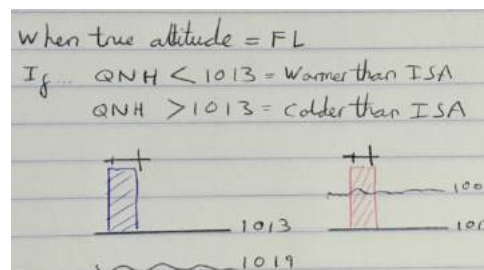 When true altitude = FL
If... QNH < 1013 = Warmer than ISA
QNH > 1013 = Colder than ISA
1013
1019